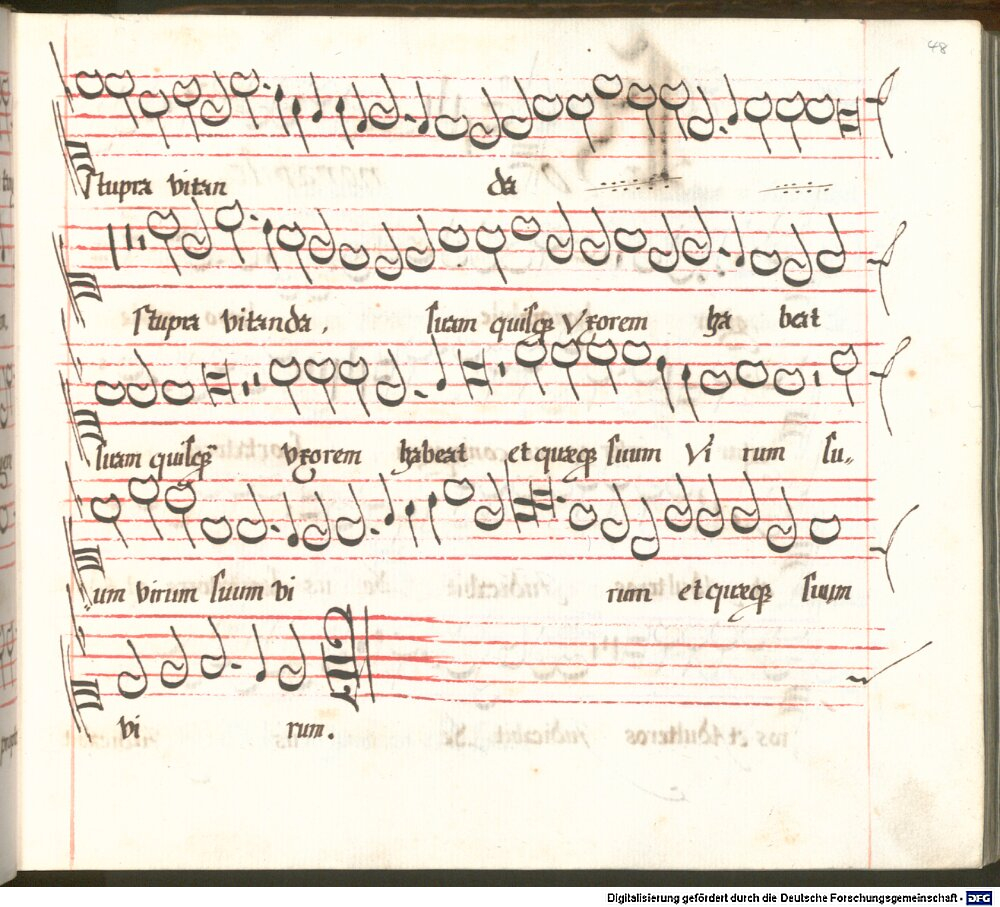 48
Stupra vitan da
Stupra vitanda , suam quisqꝫ Vxorem ha beat
suam quisqꝫ vxorem habeat et quæqꝫ suum Vi rum su„
um virum suum vi rum et quæqꝫ suum
vi rum.
Digitalisierung gefördert durch die Deutsche Forschungsgemeinschaft - DFG